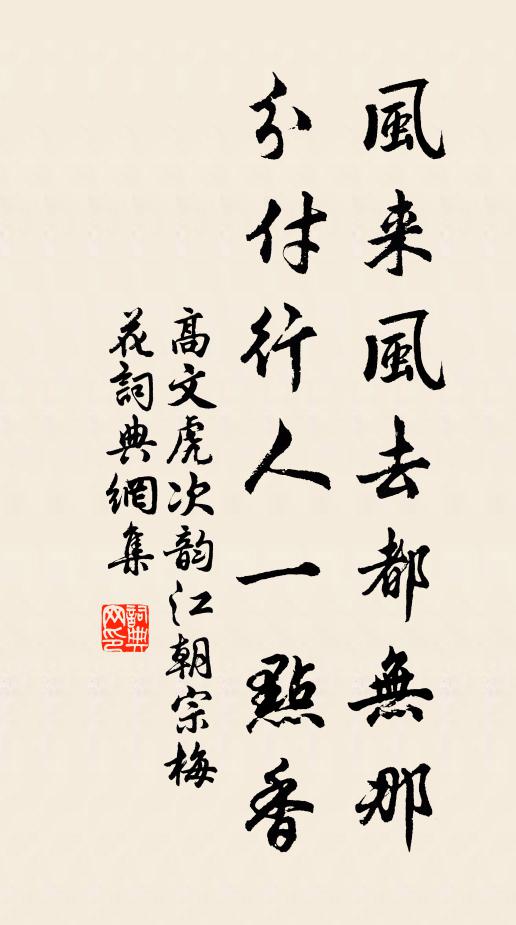 風来風去都無那
分付行人一點香
高文虎次韵江朝宗梅
花詞典網集
詞典
网印